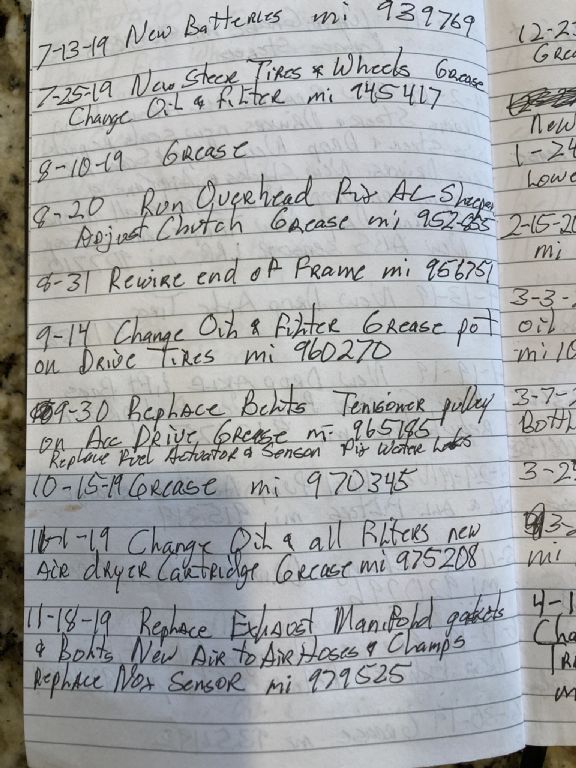 7-13-19 New Batteries mi 939769
7-25-19 New Steer Tires & Wheels Grease
Change Oil & filter mi 945417
8-10-19 Grease
8-20 Run Overhead Fix AC Sleeper
Adjust Clutch Grease mi 952455
8-31 Rewire end of Frame mi 956751
9-14 Change Oil & Filter Grease put
on Drive Tires mi 960270
9-30 Replace Belts Tensioner pulley
on Acc Drive, Grease mi 965185
Replace Fuel Actuator & Sensor Fix Water Leaks
10-15-19 Grease mi 970345
11-1-19 Change Oil & all Filters new
Air dryer Cartridge Grease mi 975208
11-18-19 Replace Exhaust Manifold gaskets
& Bolts New Air to Air Hoses & Clamps
Replace Nox Sensor mi 979525
12-2
Grea
New
1-24
Lowe
2-15-20
mi
3-3-
oil
mi 10
3-7-
Bott
3-2
3-2
mi
4-1
Cha